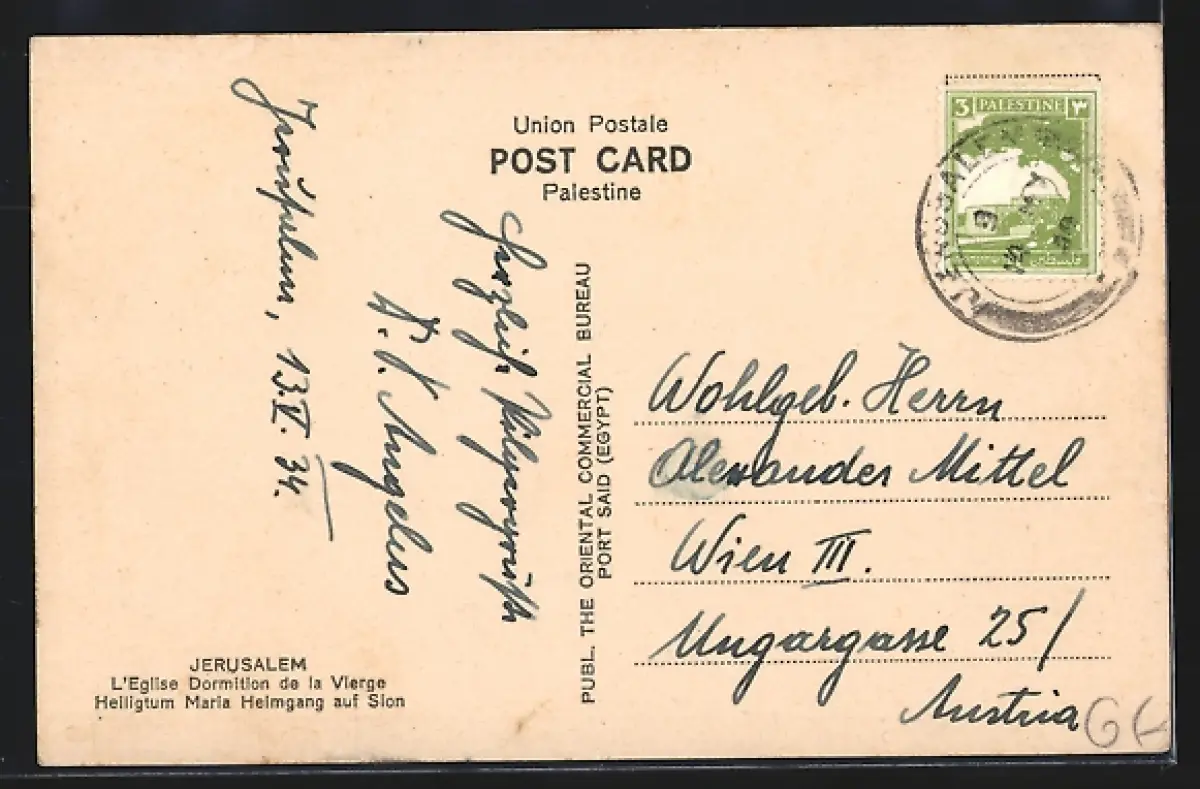 Union Postale
POST CARD
Palestine
3 PALESTINE ٣
فلسطين
JERUSALEM
9 MY
34
Jerusalem, 13.V.34.
Herzlich. Pilgergrüße
Angelus
PUBL. THE ORIENTAL COMMERCIAL BUREAU
PORT SAID (EGYPT)
Wohlgeb. Herrn
Alexander Mittel
Wien III.
Ungargasse 25/
Austria
JERUSALEM
L'Eglise Dormition de la Vierge
Heiligtum Maria Heimgang auf Sion